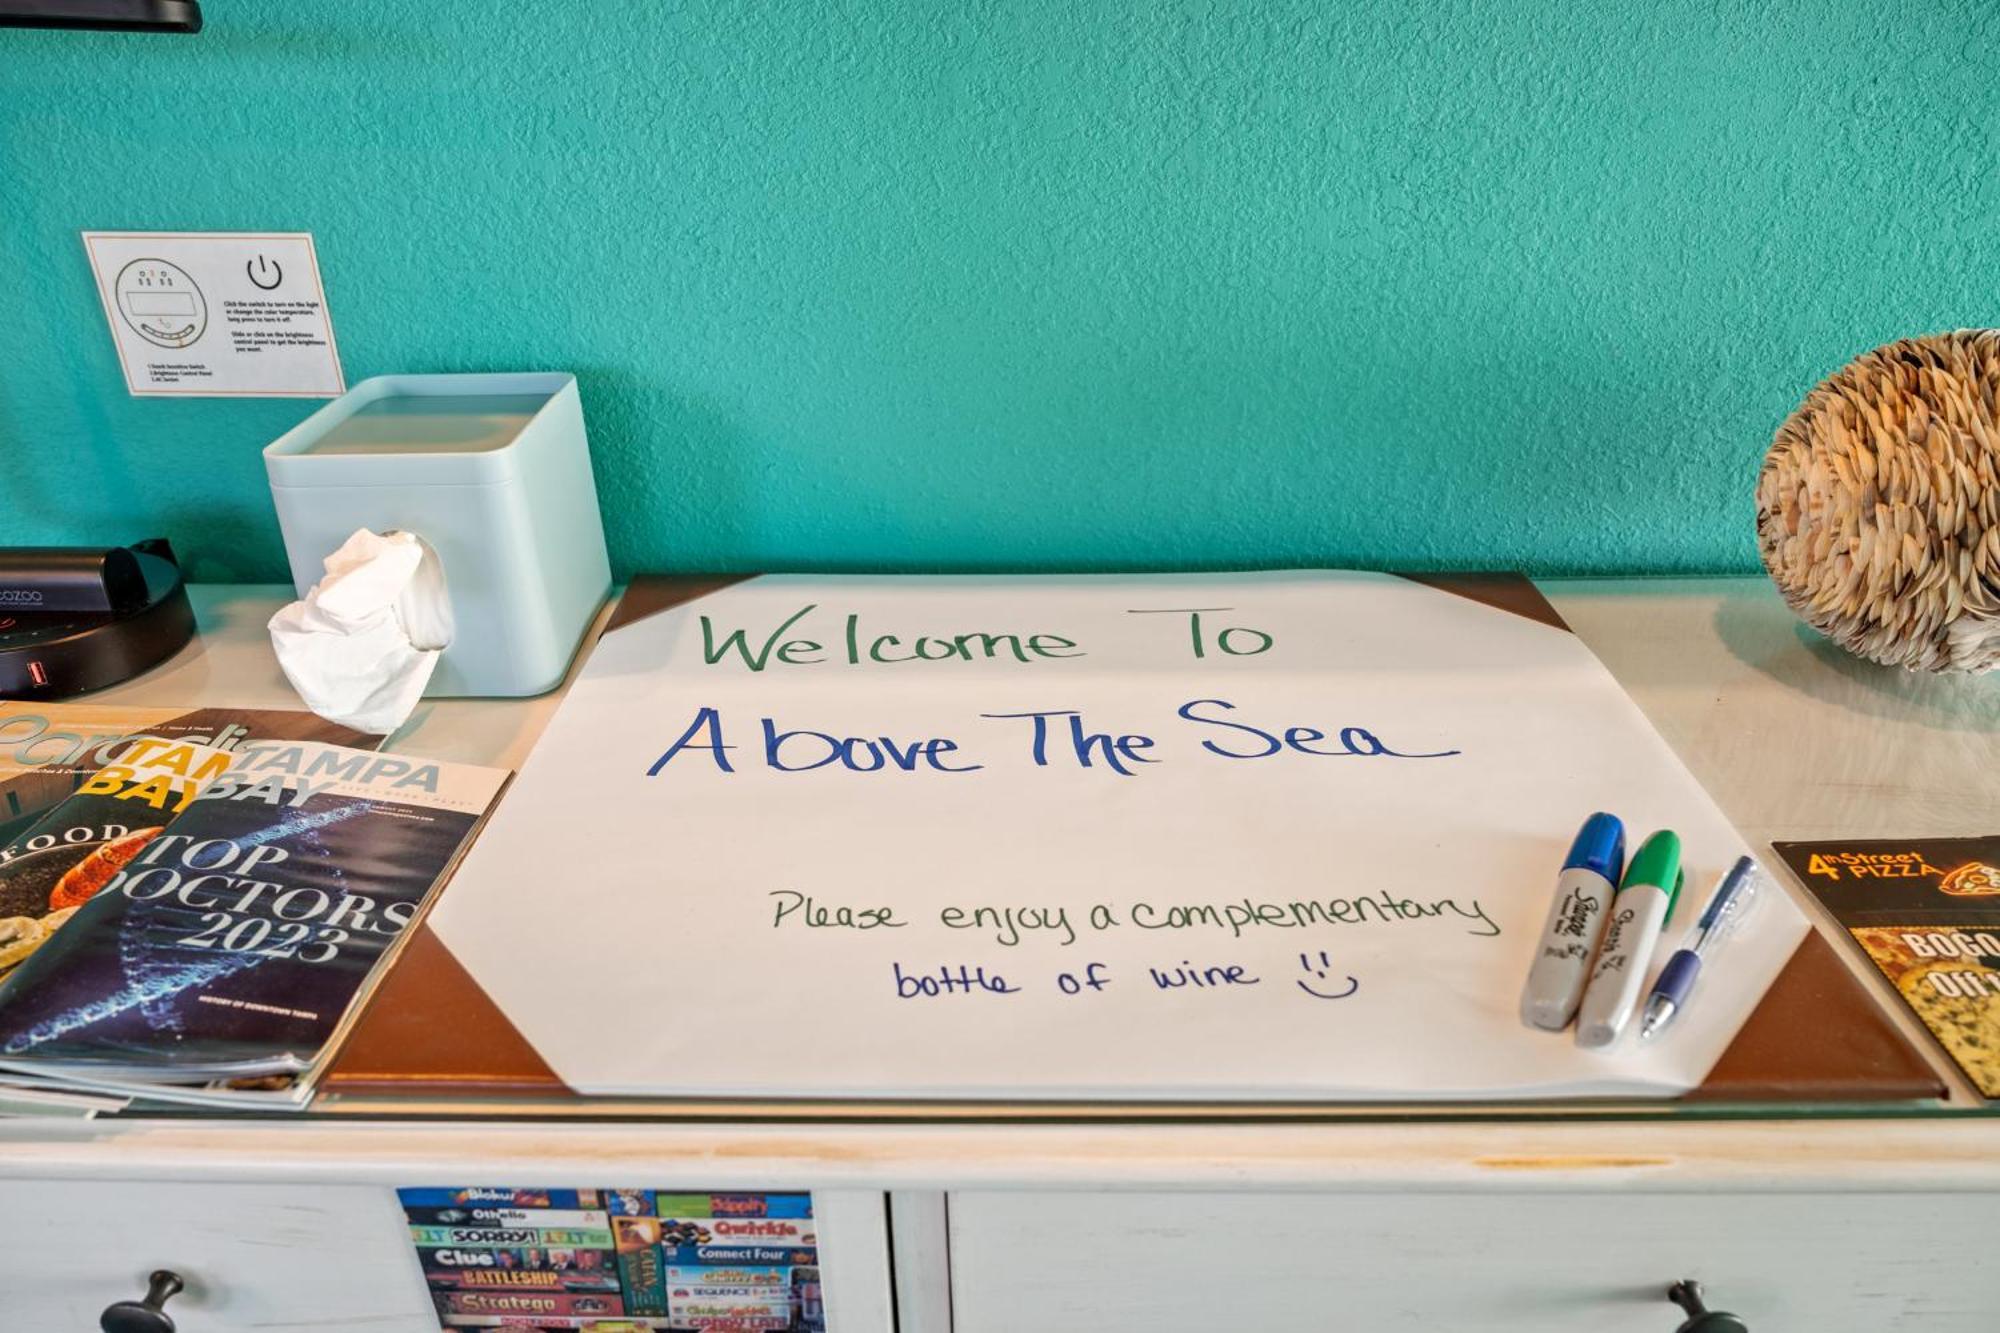 Click the switch to turn on the light
or change the color temperature,
long press to turn it off.
Slide or click on the brightness
control panel to get the brightness
you want.
1.Touch Sensitive Switch
2.Brightness Control Panel
COZOO
Welcome To
Above The Sea
Please enjoy a complementary
bottle of wine
TAMPA
BAY
TAMPA
BAY
FOOD
TOP
DOCTORS
2023
HISTORY OF DOWNTOWN TAMPA
Sharpie
4th Street
PIZZA
BOGO
Off
Blokus
Othello
SORRY!
Clue
BATTLESHIP
Stratego
MONOPOLY
CATAN
Skippity
Qwirkle
Connect Four
SEQUENCE
CANDY LAND